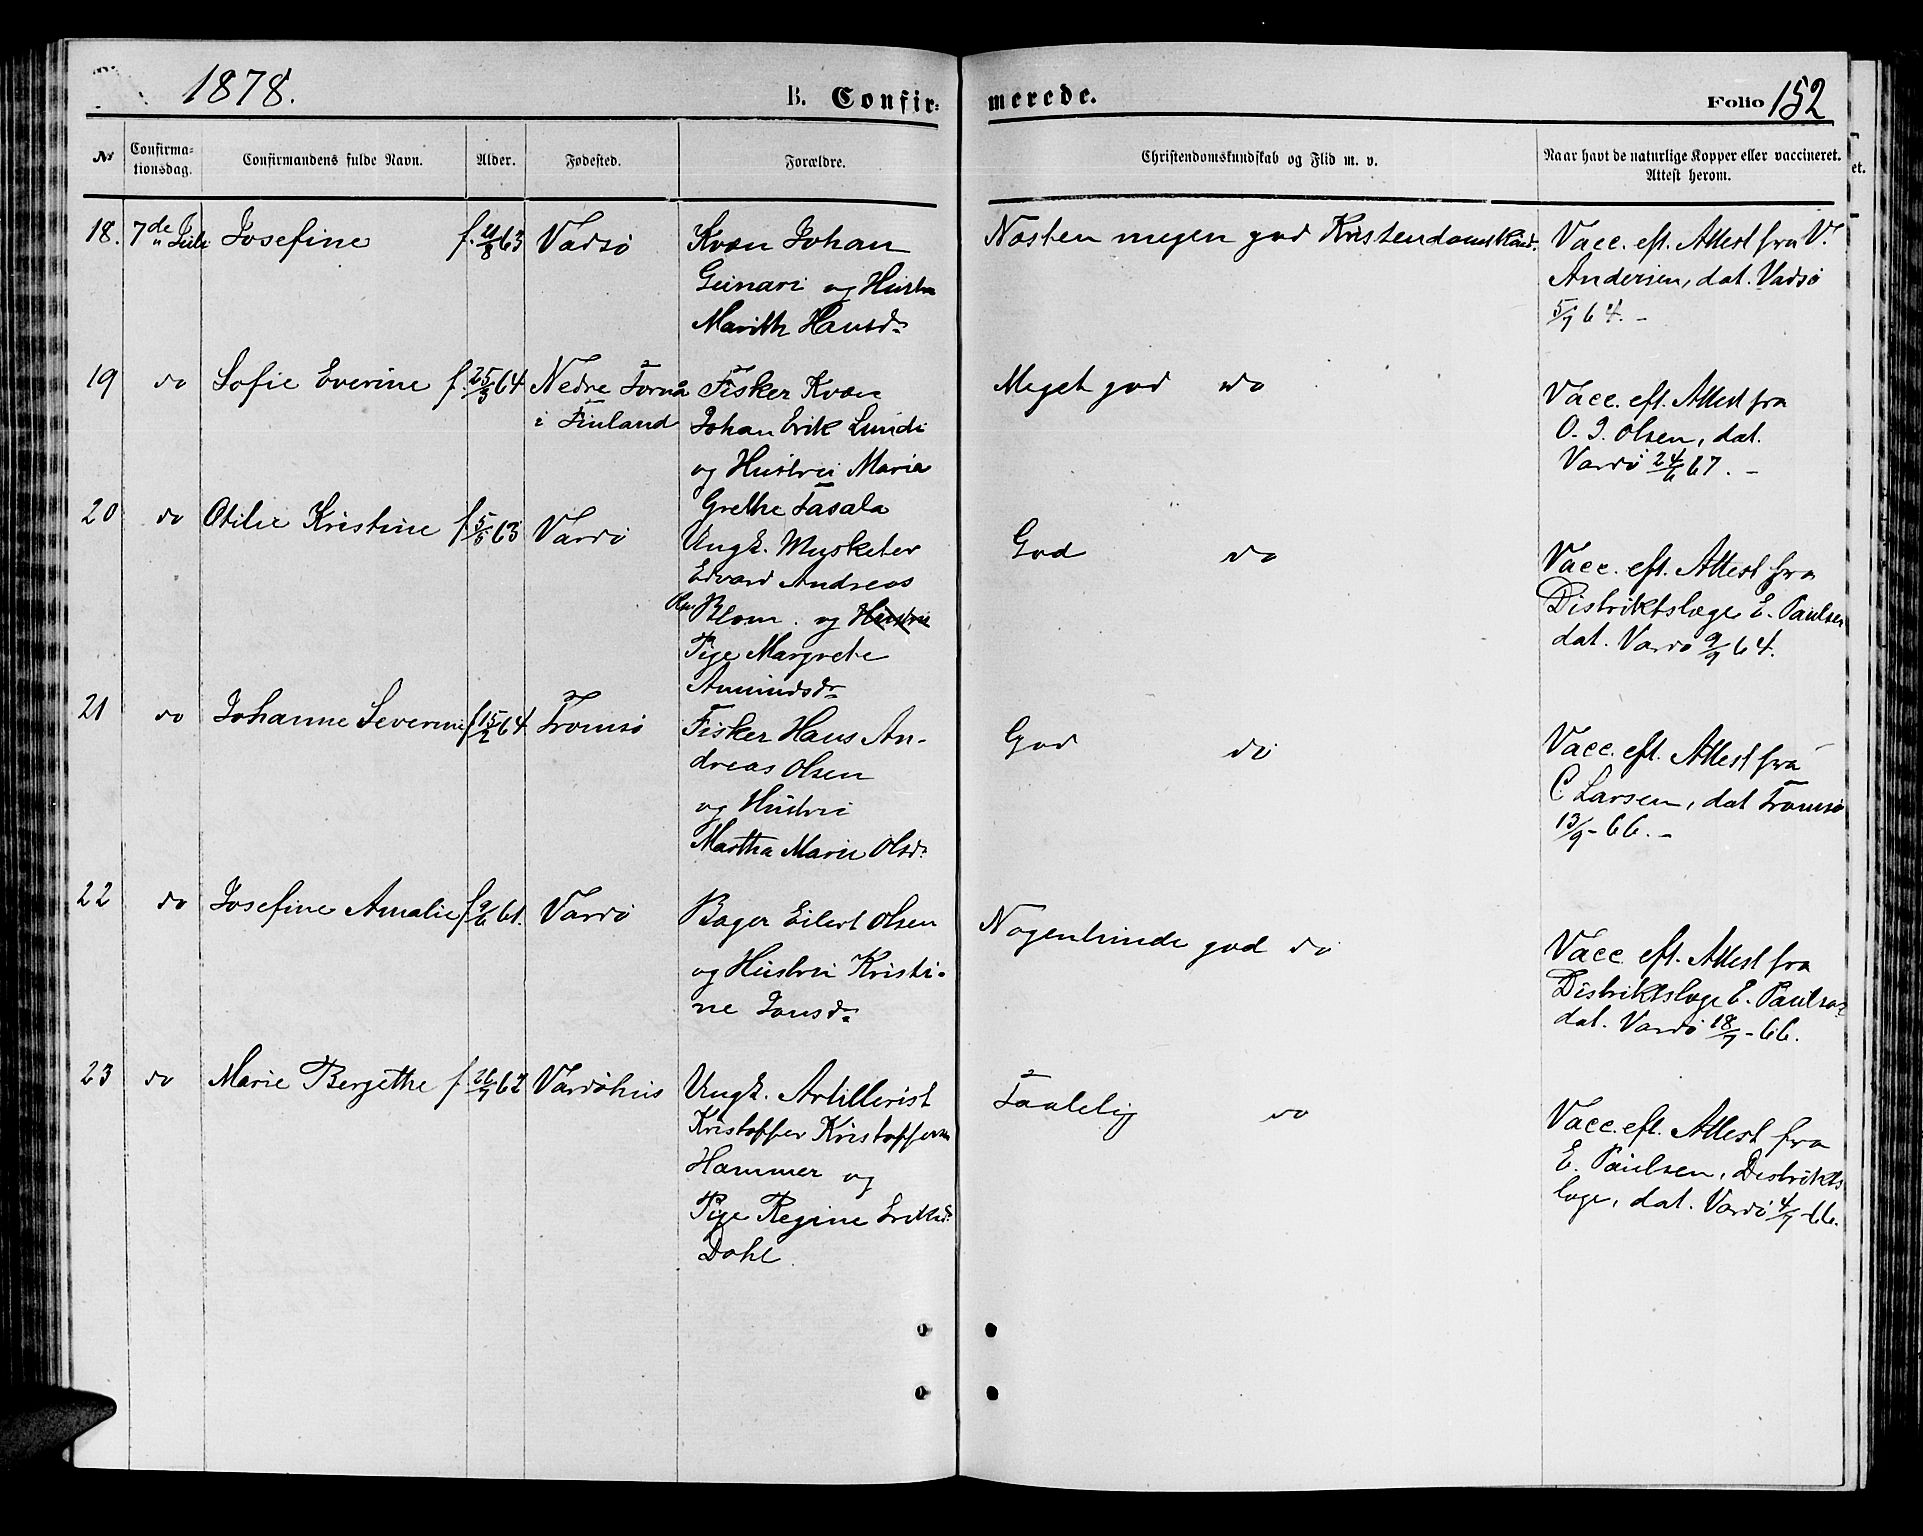 1878.
B. Confir-
merede.
Folio 152
No
Confirma-
tionsdag.
Confirmandens fulde Navn.
Alder.
Fødested.
Forældre.
Christendomskundskab og Flid m. v.
Naar havt de naturlige Kopper eller vaccineret.
Attest herom.
et.
18. 7de Juli Josefine f. 63 Vadsø Kvæn Johan
og Hustru
Marith Hansdr
Næsten megen god Kristendomskund.
Vacc. eft. Attest fra V.
Andersen, dat. Vadsø
5/7 64. -
19 do Sofie Everine f. 25/3 64 Nedre Tornå
i Finland
Fisker Kvæn
Johan Erik Lundi
og Hustru Maria
Grethe Tasala
Meget god do
Vacc. eft. Attest fra
O. J. Olsen, dat.
Vardø 24/6 67. -
20 do Otilie Kristine f 63 Vardø
Ungk. Musketer
Edvard Andreas
Blom. og Hustru
Pige Margrete
Amundsdr
God do
Vacc. eft. Attest fra
Distriktslæge E. Paulsen
dat. Vardø 9/9 64.
21 do Johanne Severine f 15/2 64. Tromsø
Fisker Hans An-
dreas Olsen
og Hustru
Martha Marie Olsdr
God do
Vacc. eft. Attest fra
C. Larsen, dat Tromsø
13/9 - 66. -
22 do Josefine Amalie f 9/6 61. Vardø
Bager Eilert Olsen
og Hustru Kristi-
ne Jonsdr
Nogenlunde god do
Vacc. eft. Attest fra
Distriktslæge E. Paulsen
dat. Vardø 18/7 - 66.
23 do Marie Bergethe f. 26/7 62 Vardøhus
Ungk. Artillerist
Kristoffer Kristoffersen
Hammer og
Pige Regine Eriksdr
Dahl
Taalelig do
Vacc. eft. Attest fra
E. Paulsen, Distrikts
læge, dat. Vardø 4/7 - 66.